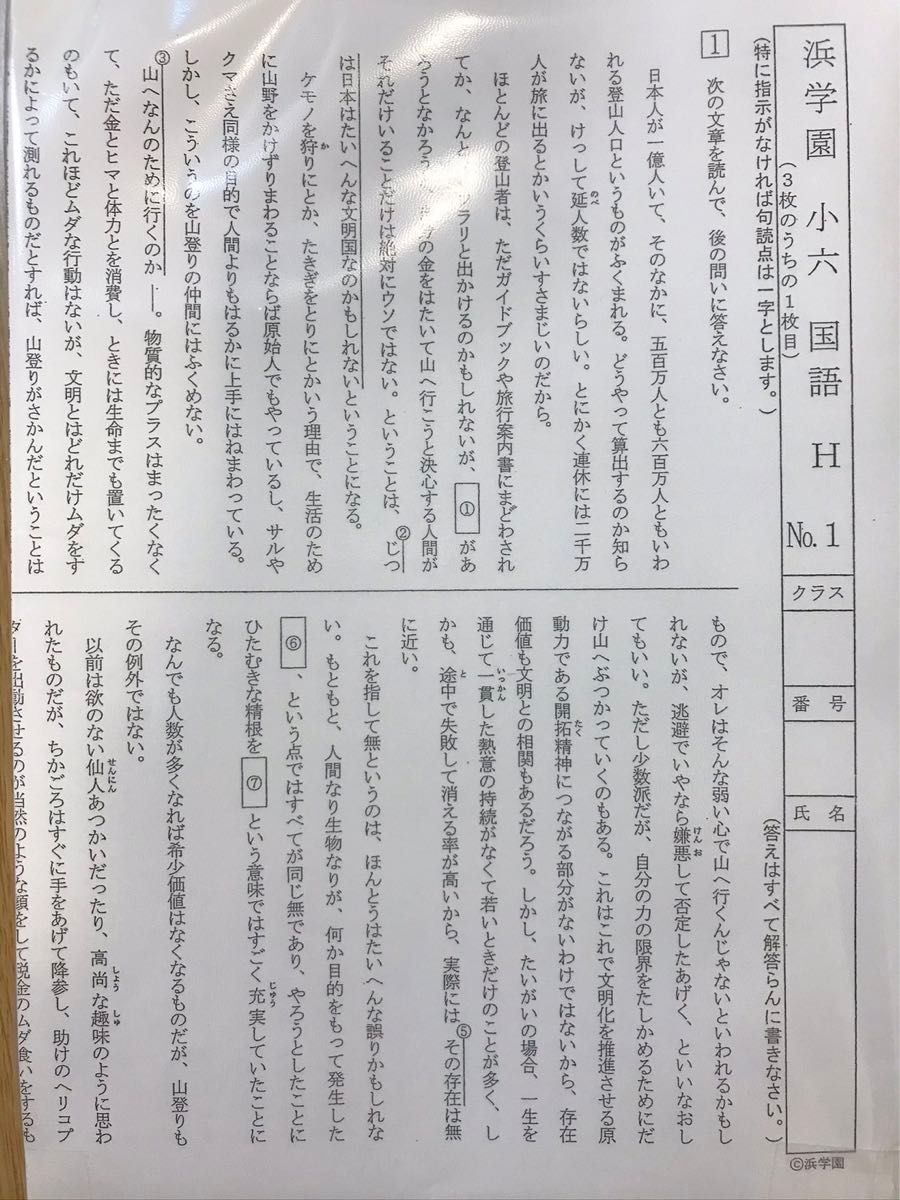 浜学園 小六 国語 H No.1
(3枚のうちの1枚目)
クラス
番号
氏名
(特に指示がなければ句読点は一字とします。)
(答えはすべて解答らんに書きなさい。)
1 次の文章を読んで、後の問いに答えなさい。
日本人が一億人いて、そのなかに、五百万人とも六百万人ともいわ
れる登山人口というものがふくまれる。どうやって算出するのか知ら
ないが、けっして延人数ではないらしい。とにかく連休には二千万
のべ
人が旅に出るとかいうくらいすさまじいのだから。
ほとんどの登山者は、ただガイドブックや旅行案内書にまどわされ
てか、なんと ラリと出かけるのかもしれないが、①があ
ろうとなかろう の金をはたいて山へ行こうと決心する人間が
それだけいることだけは絶対にウソではない。ということは、②じつ
は日本はたいへんな文明国なのかもしれないということになる。
ケモノを狩りにとか、たきぎをとりにとかいう理由で、生活のため
か
に山野をかけずりまわることならば原始人でもやっているし、サルや
クマさえ同様の目的で人間よりもはるかに上手にはねまわっている。
しかし、こういうのを山登りの仲間にはふくめない。
③山へなんのために行くのか──。物質的なプラスはまったくなく
て、ただ金とヒマと体力とを消費し、ときには生命までも置いてくる
のもいて、これほどムダな行動はないが、文明とはどれだけムダをす
るかによって測れるものだとすれば、山登りがさかんだということは
もので、オレはそんな弱い心で山へ行くんじゃないといわれるかもし
れないが、逃避でいやなら嫌悪して否定したあげく、といいなおし
けんお
てもいい。ただし少数派だが、自分の力の限界をたしかめるためにだ
け山へぶつかっていくのもある。これはこれで文明化を推進させる原
動力である開拓精神につながる部分がないわけではないから、存在
たく
価値も文明との相関もあるだろう。しかし、たいがいの場合、一生を
通じて一貫した熱意の持続がなくて若いときだけのことが多く、し
いっかん
かも、途中で失敗して消える率が高いから、実際には⑤その存在は無
と
に近い。
これを指して無というのは、ほんとうはたいへんな誤りかもしれな
い。もともと、人間なり生物なりが、何か目的をもって発生した
⑥、という点ではすべてが同じ無であり、やろうとしたことに
ひたむきな精根を⑦という意味ではすごく充実していたことに
じゅう
なる。
なんでも人数が多くなれば希少価値はなくなるものだが、山登りも
その例外ではない。
以前は欲のない仙人あつかいだったり、高尚な趣味のように思わ
せんにん
しょう
しゅ
れたものだが、ちかごろはすぐに手をあげて降参し、助けのヘリコプ
ターを出動させるのが当然のような顔をして税金のムダ食いをするも
©浜学園